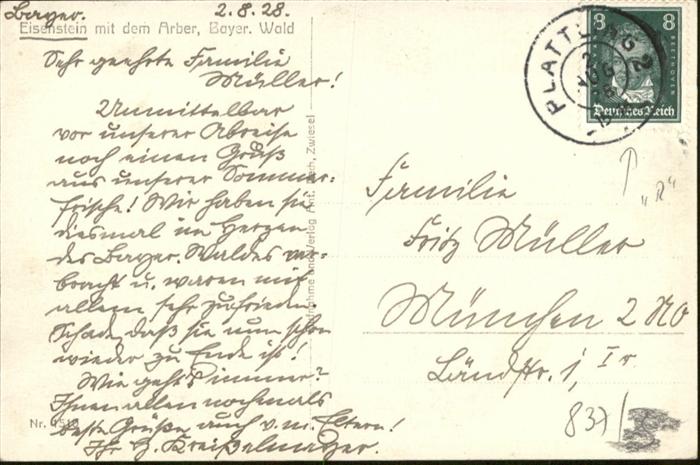 Bayer. 2.8.28.
Eisenstein mit dem Arber, Bayer. Wald
Sehr geehrte Familie
Müller!
Unmittelbar
vor unserer Abreise
noch einen Gruß
aus unserer Sommer-
frische! Wir haben sie
diesmal im Herzen
des Bayer. Waldes ver-
bracht u. waren mit
allem sehr zufrieden.
Schade, daß sie nun schon
wieder zu Ende ist!
Wie geht's immer?
Ihnen allen nochmals
beste Grüße, auch v. m. Eltern!
Ihr H. Kreißelmayer.
Nr.
Verlag
Zwiesel
PLATTLING 2
AUG
8 8
BEETHOVEN
Deutsches Reich
"R"
Familie
Fritz Müller
München 2 NO
Ländstr. 1, I r.
837/